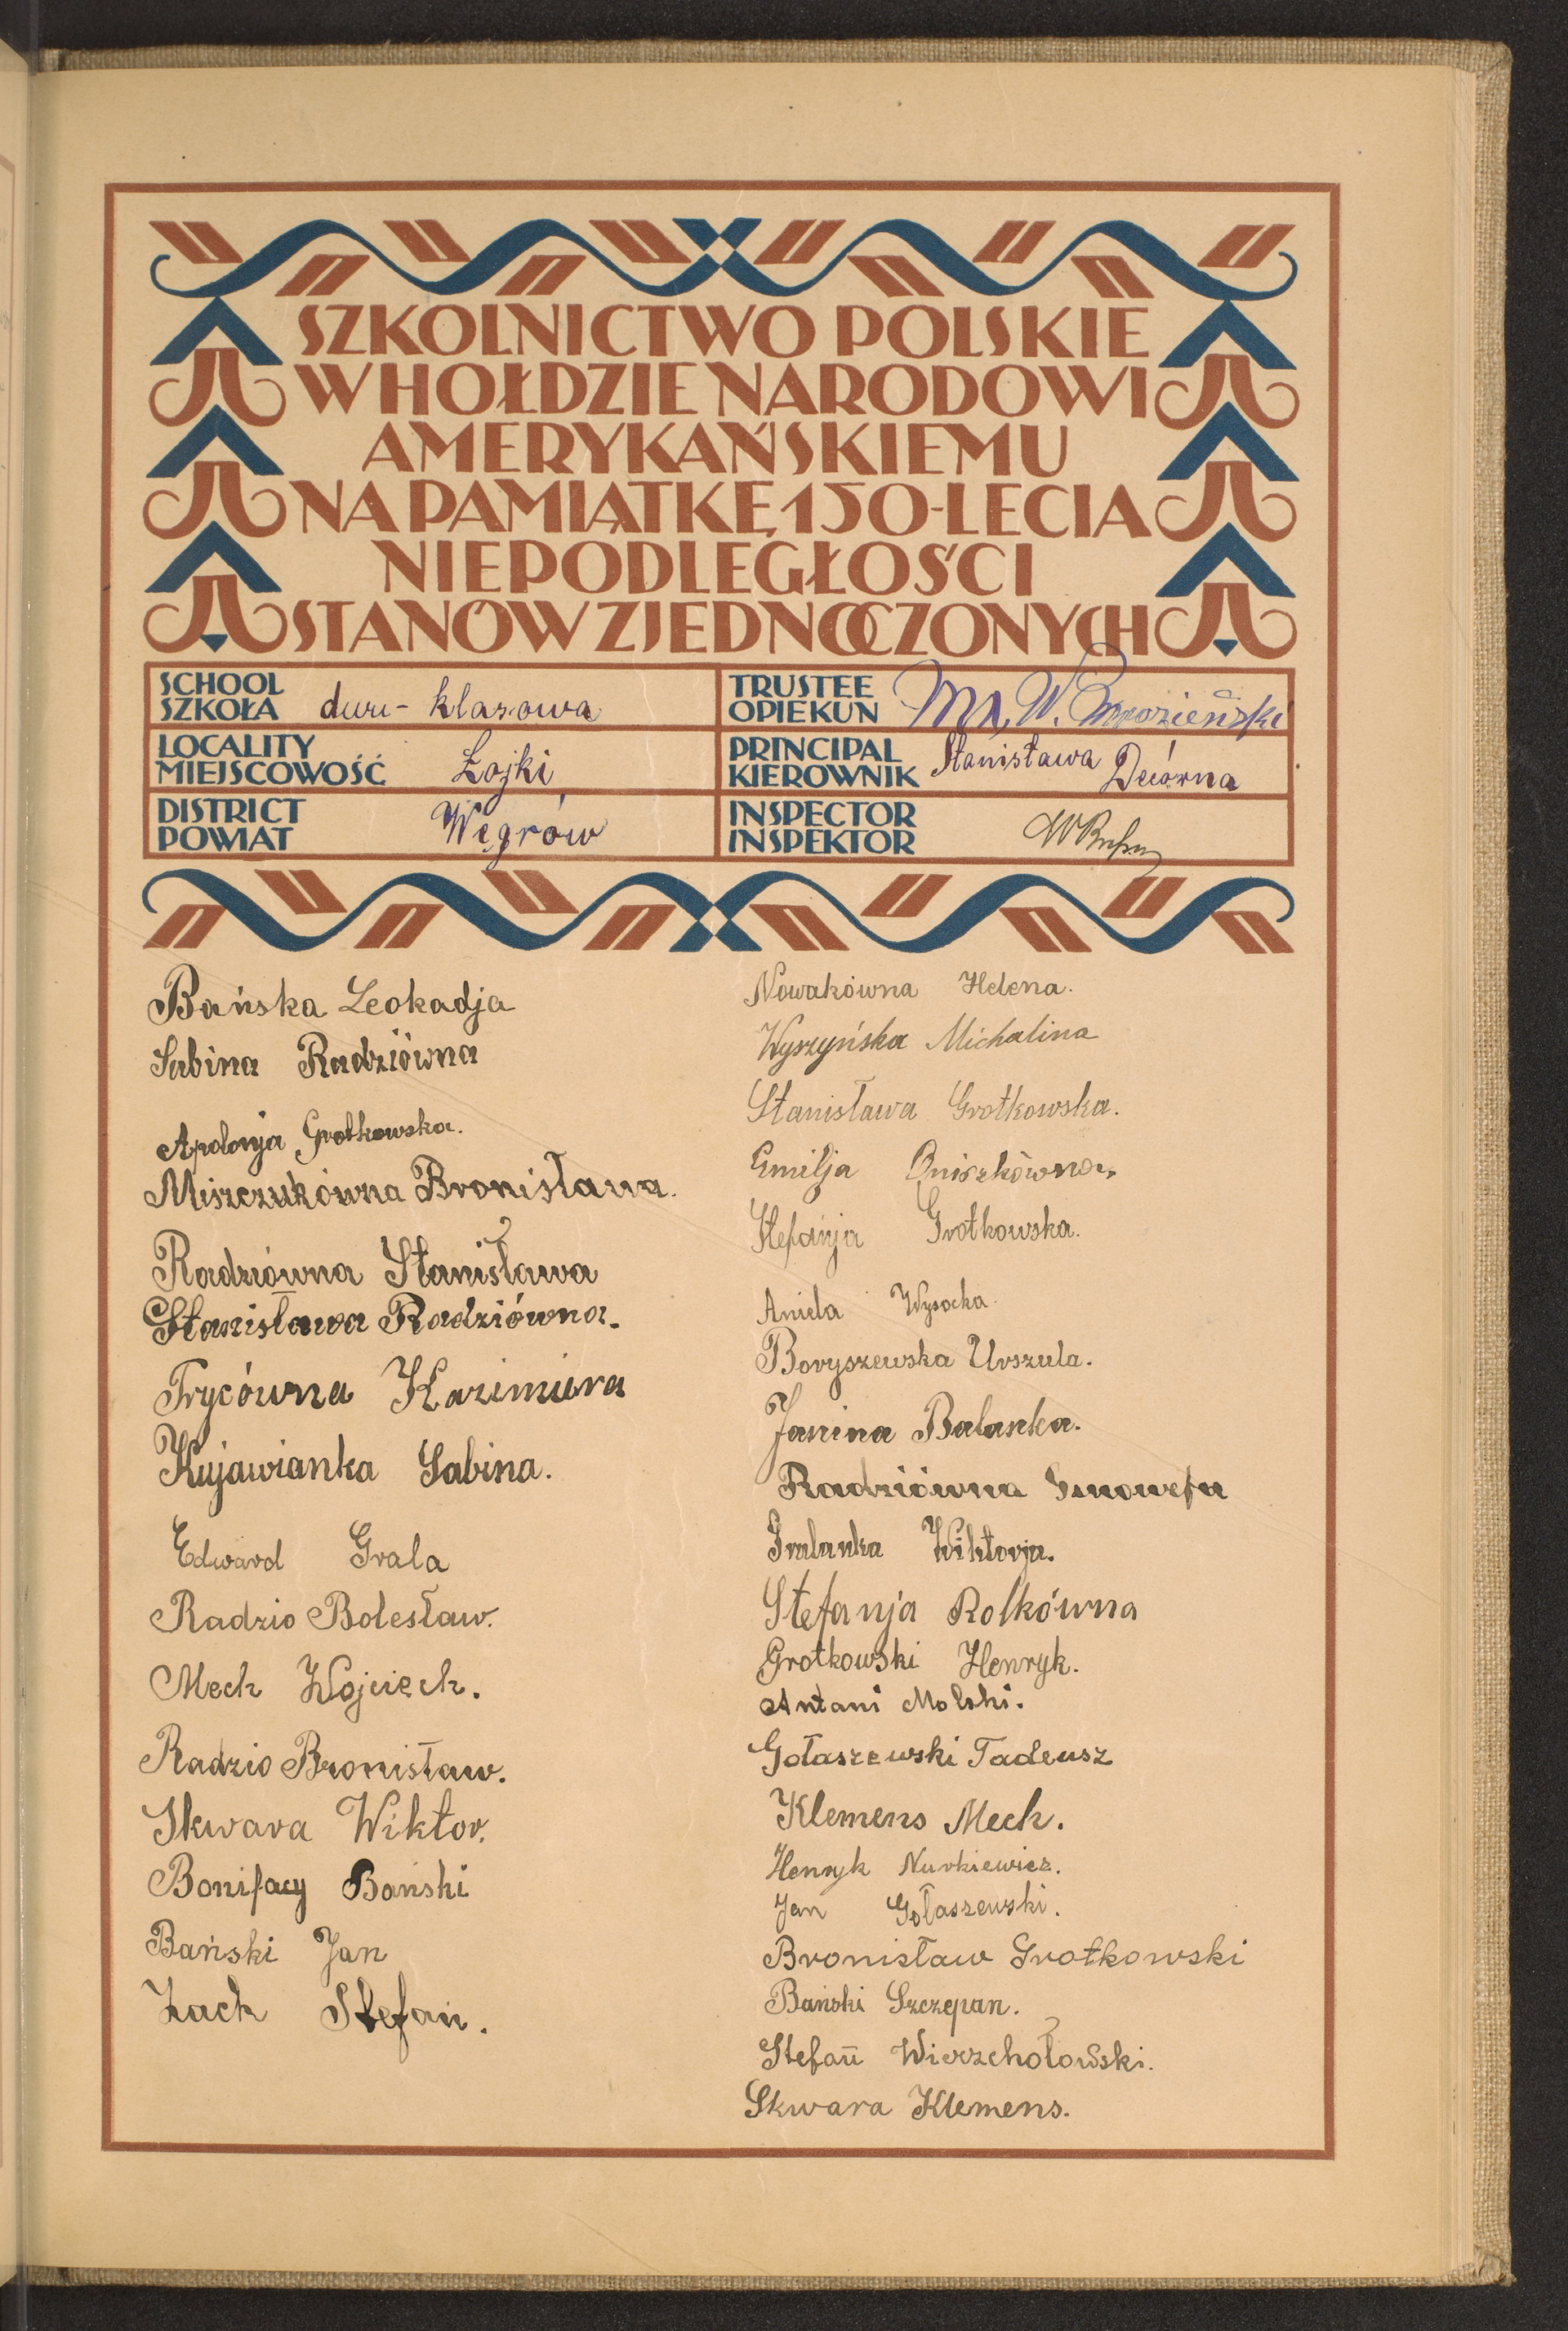 SZKOLNICTWO POLSKIE
W HOŁDZIE NARODOWI
AMERYKAŃSKIEMU
NA PAMIĄTKĘ 150-LECIA
NIEPODLEGŁOŚCI
STANÓW ZJEDNOCZONYCH
SCHOOL
SZKOŁA dwu-klasowa
LOCALITY
MIEJSCOWOŚĆ Łojki
DISTRICT
POWIAT Węgrów
TRUSTEE
OPIEKUN W.
PRINCIPAL
KIEROWNIK Stanisława
INSPECTOR
INSPEKTOR
Bańska Leokadja
Sabina Radziówna
Apolonja Grotkowska.
Miszczukówna Bronisława.
Radziówna Stanisława
Stanisława Radziówna.
Trycówna Kazimiera
Kujawianka Sabina.
Edward Grala
Radzio Bolesław.
Mech Wojciech.
Radzio Bronisław.
Skwara Wiktor.
Bonifacy Bański
Bański Jan
Żach Stefan.
Nowakówna Helena.
Wyszyńska Michalina
Stanisława Grotkowska.
Emilja Oniszkówna.
Stefanja Grotkowska.
Aniela Wysocka
Boryszewska Urszula.
Janina Balaska.
Radziówna Genowefa
Gralanka Wiktorja.
Stefanja Rolkówna
Grotkowski Henryk.
Antoni Molski.
Gołaszewski Tadeusz
Klemens Mech.
Henryk Nurkiewicz.
Jan Gołaszewski.
Bronisław Grotkowski
Bański Szczepan.
Stefan Wierzchołowski.
Skwara Klemens.